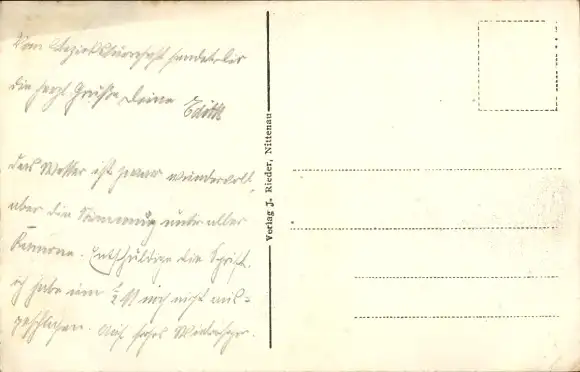 Vom Bezirksturnfest sendet dir
die herzl Grüße Deine Edith
das Wetter ist zwar wundervoll,
aber die Stimmung unter aller
Kanone. Entschuldige die Schrift,
ich habe um ½ 11 noch nicht aus-
geschlafen. Auf frohes Wiedersehn.
Verlag J. Rieder, Nittenau